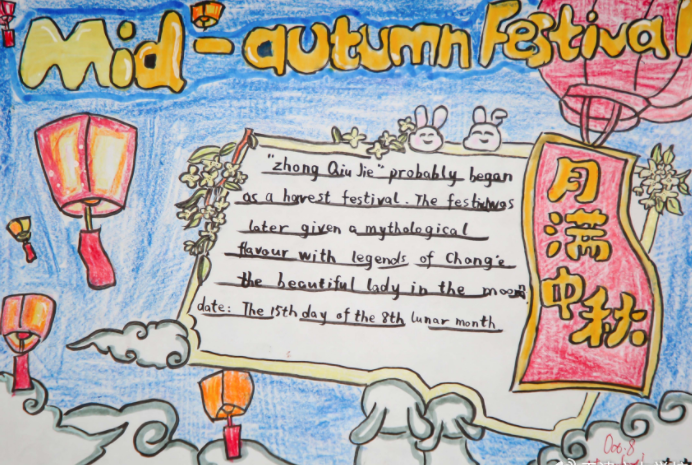 Mid-autumn Festival
"zhong Qiu Jie" probably began
as a harvest festival. The festival was
later given a mythological
flavour with legends of Chang'e
the beautiful lady in the moon
date: The 15th day of the 8th lunar month
月满中秋
Oct. 8